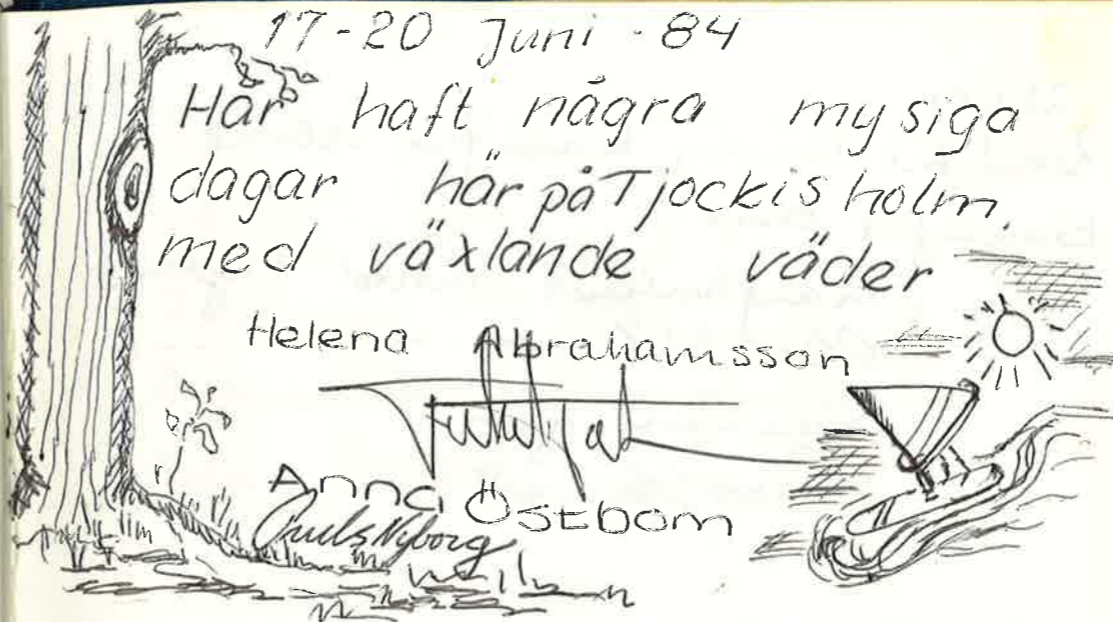 17-20 Juni - 84
Har haft några mysiga
dagar här på Tjockisholm,
med växlande väder
Helena Abrahamsson
Anna Östbom
Nyborg